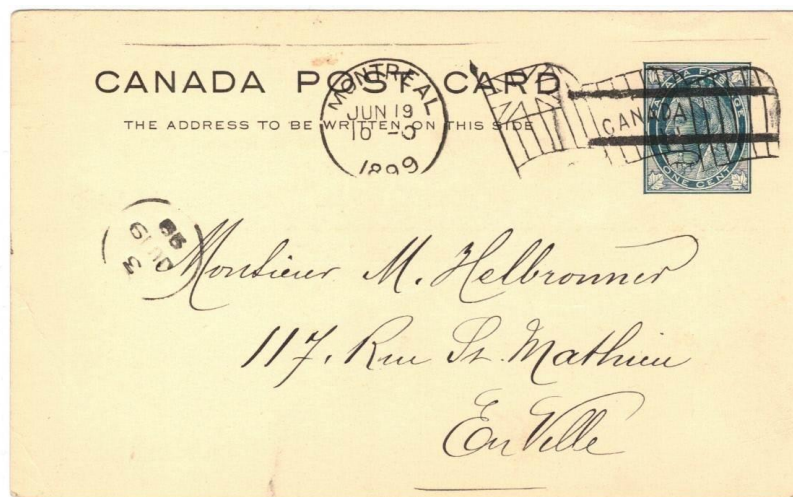 CANADA POST CARD
THE ADDRESS TO BE WRITTEN ON THIS SIDE
MONTREAL
JUN 19
1899
CANADA
CANADA POSTAGE
ONE CENT
JU 19
99
3
Monsieur M. Helbronner
117, Rue St. Mathieu
En Ville